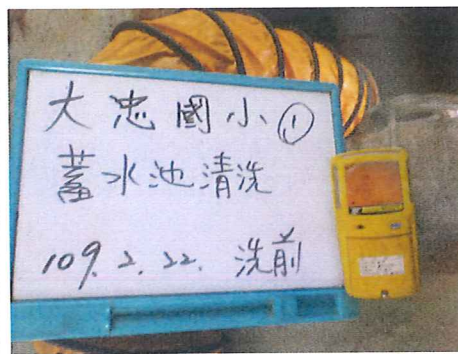 大忠國小①
蓄水池清洗
109.2.22. 洗前